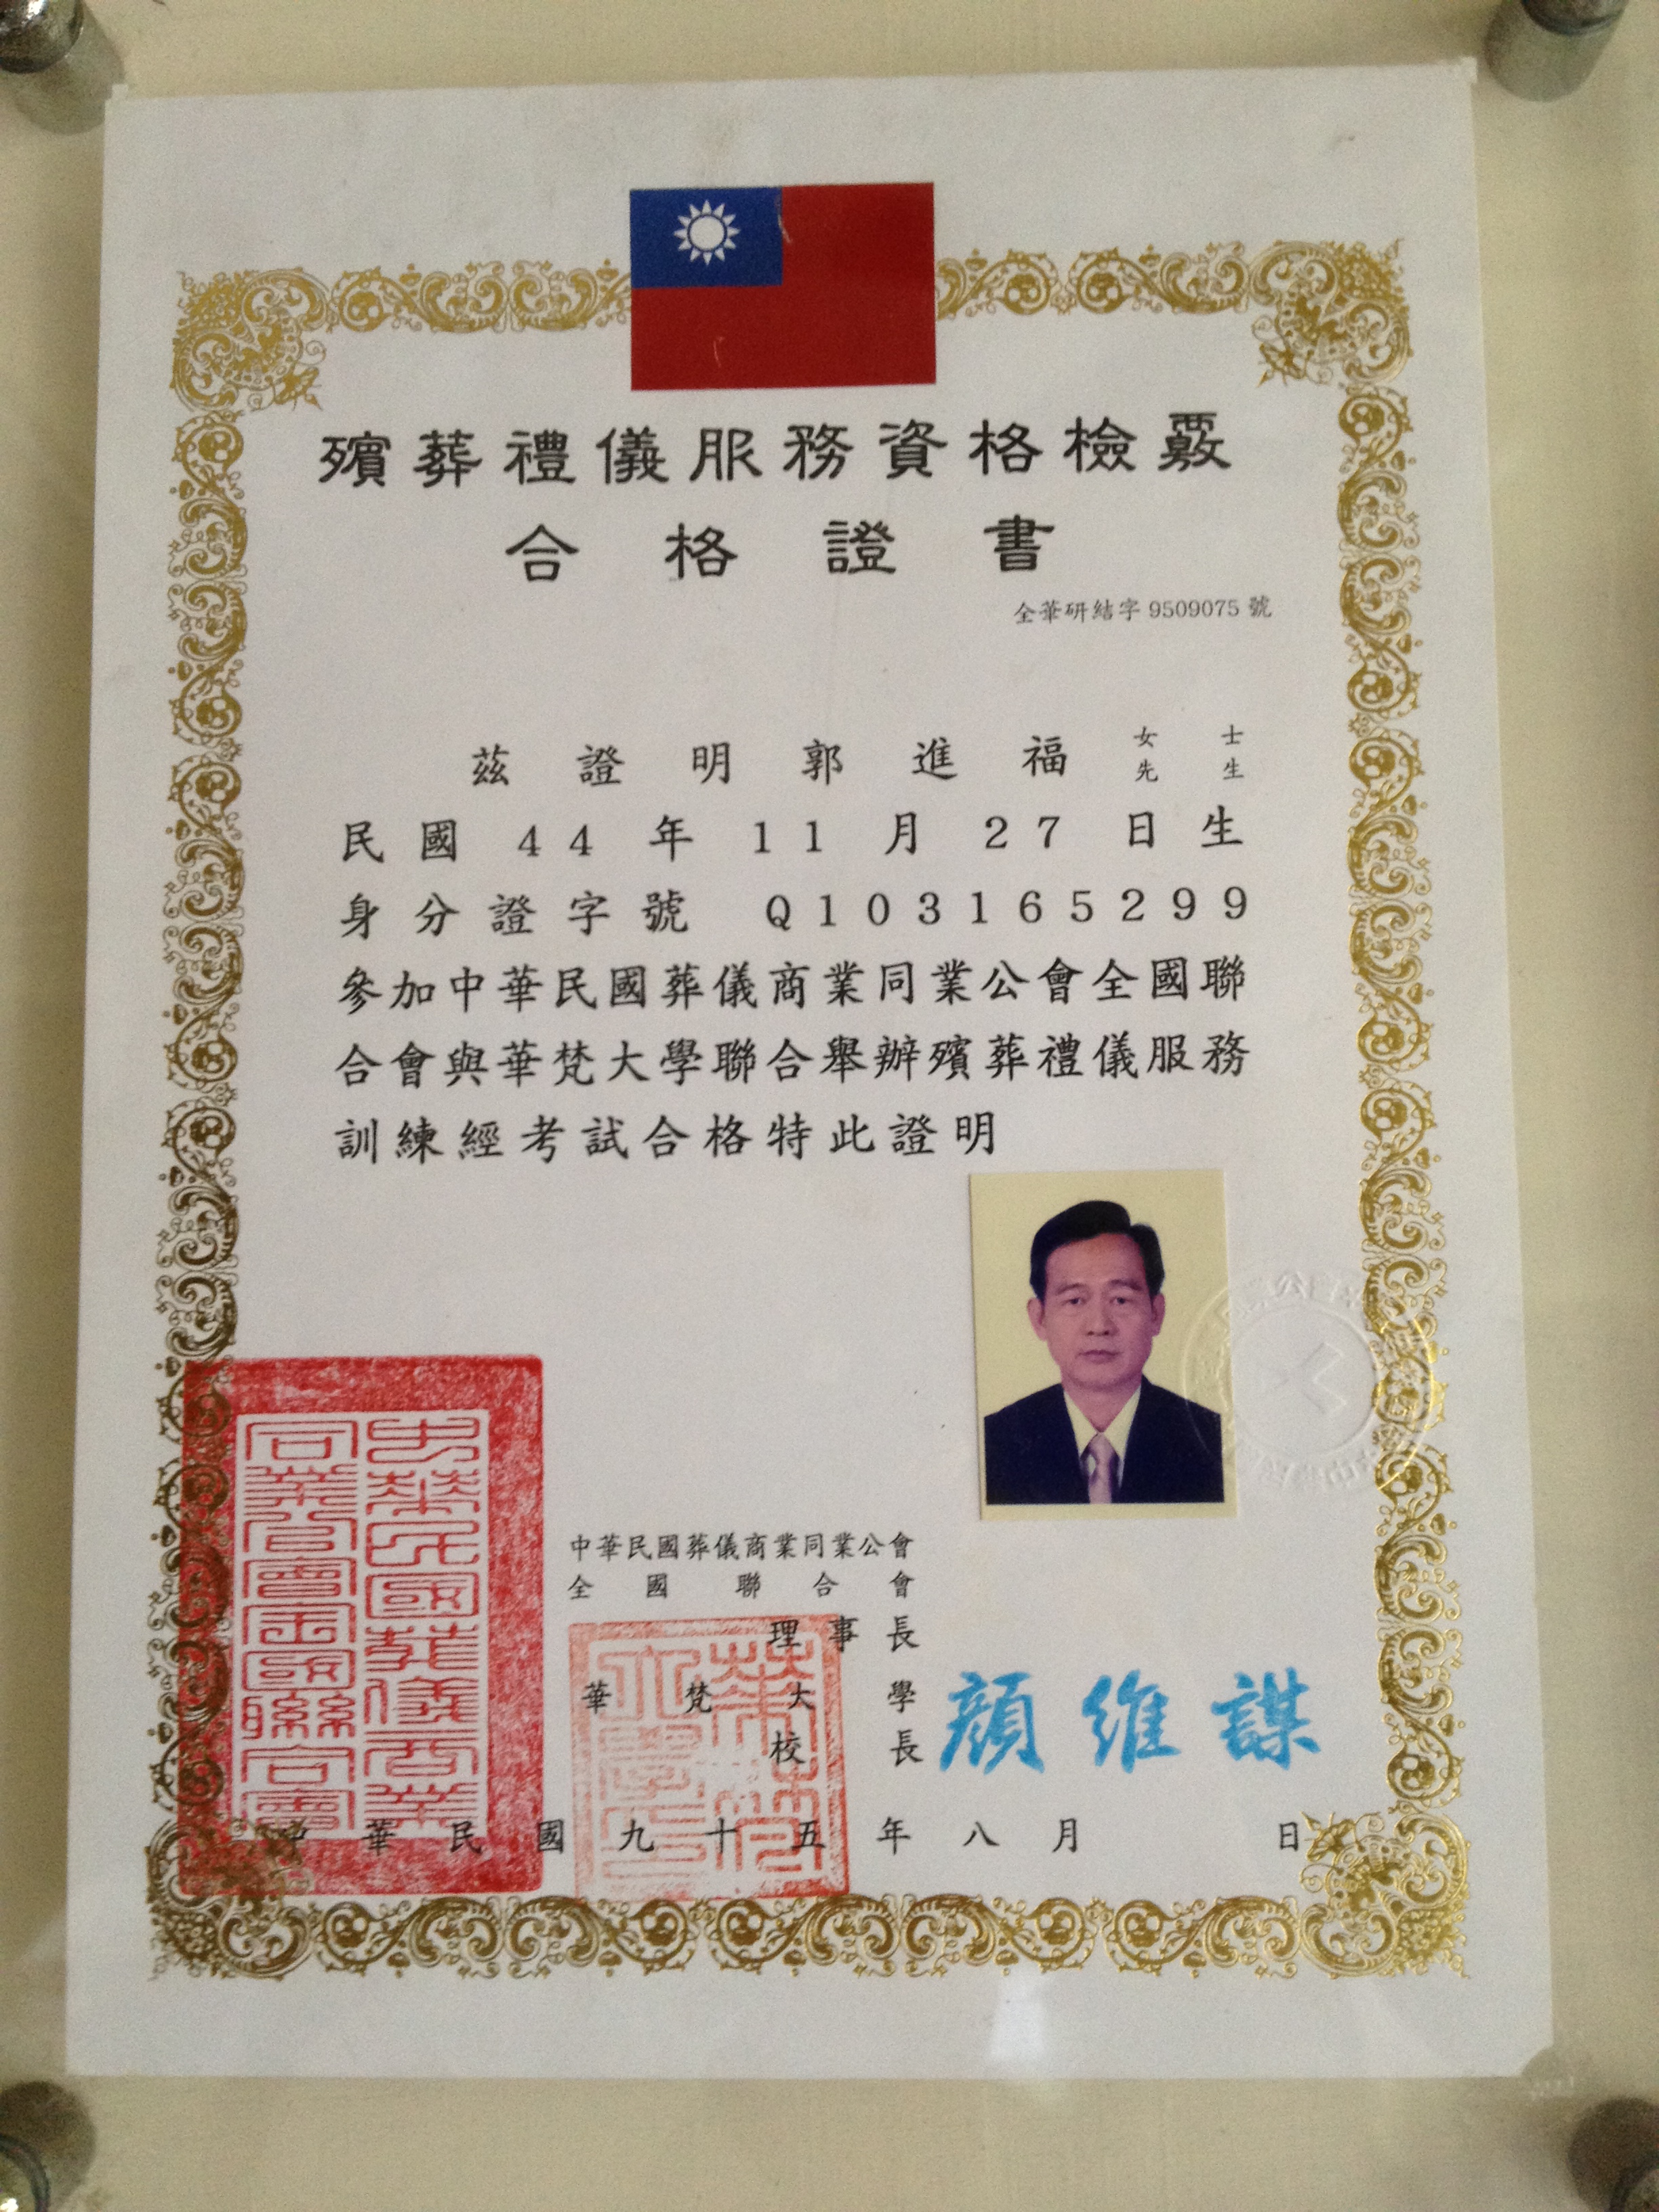 殯葬禮儀服務資格檢覈
合格證書
全華研結字 9509075 號
茲證明郭進福 女士 先生
民國 44 年 11 月 27 日生
身分證字號 Q103165299
參加中華民國葬儀商業同業公會全國聯
合會與華梵大學聯合舉辦殯葬禮儀服務
訓練經考試合格特此證明
中華民國葬儀商業同業公會
全國聯合會
理事長
華梵大學
校長
顏維謀
中華民國九十五年八月 日
中華民國葬儀商業
同業公會全國聯合會